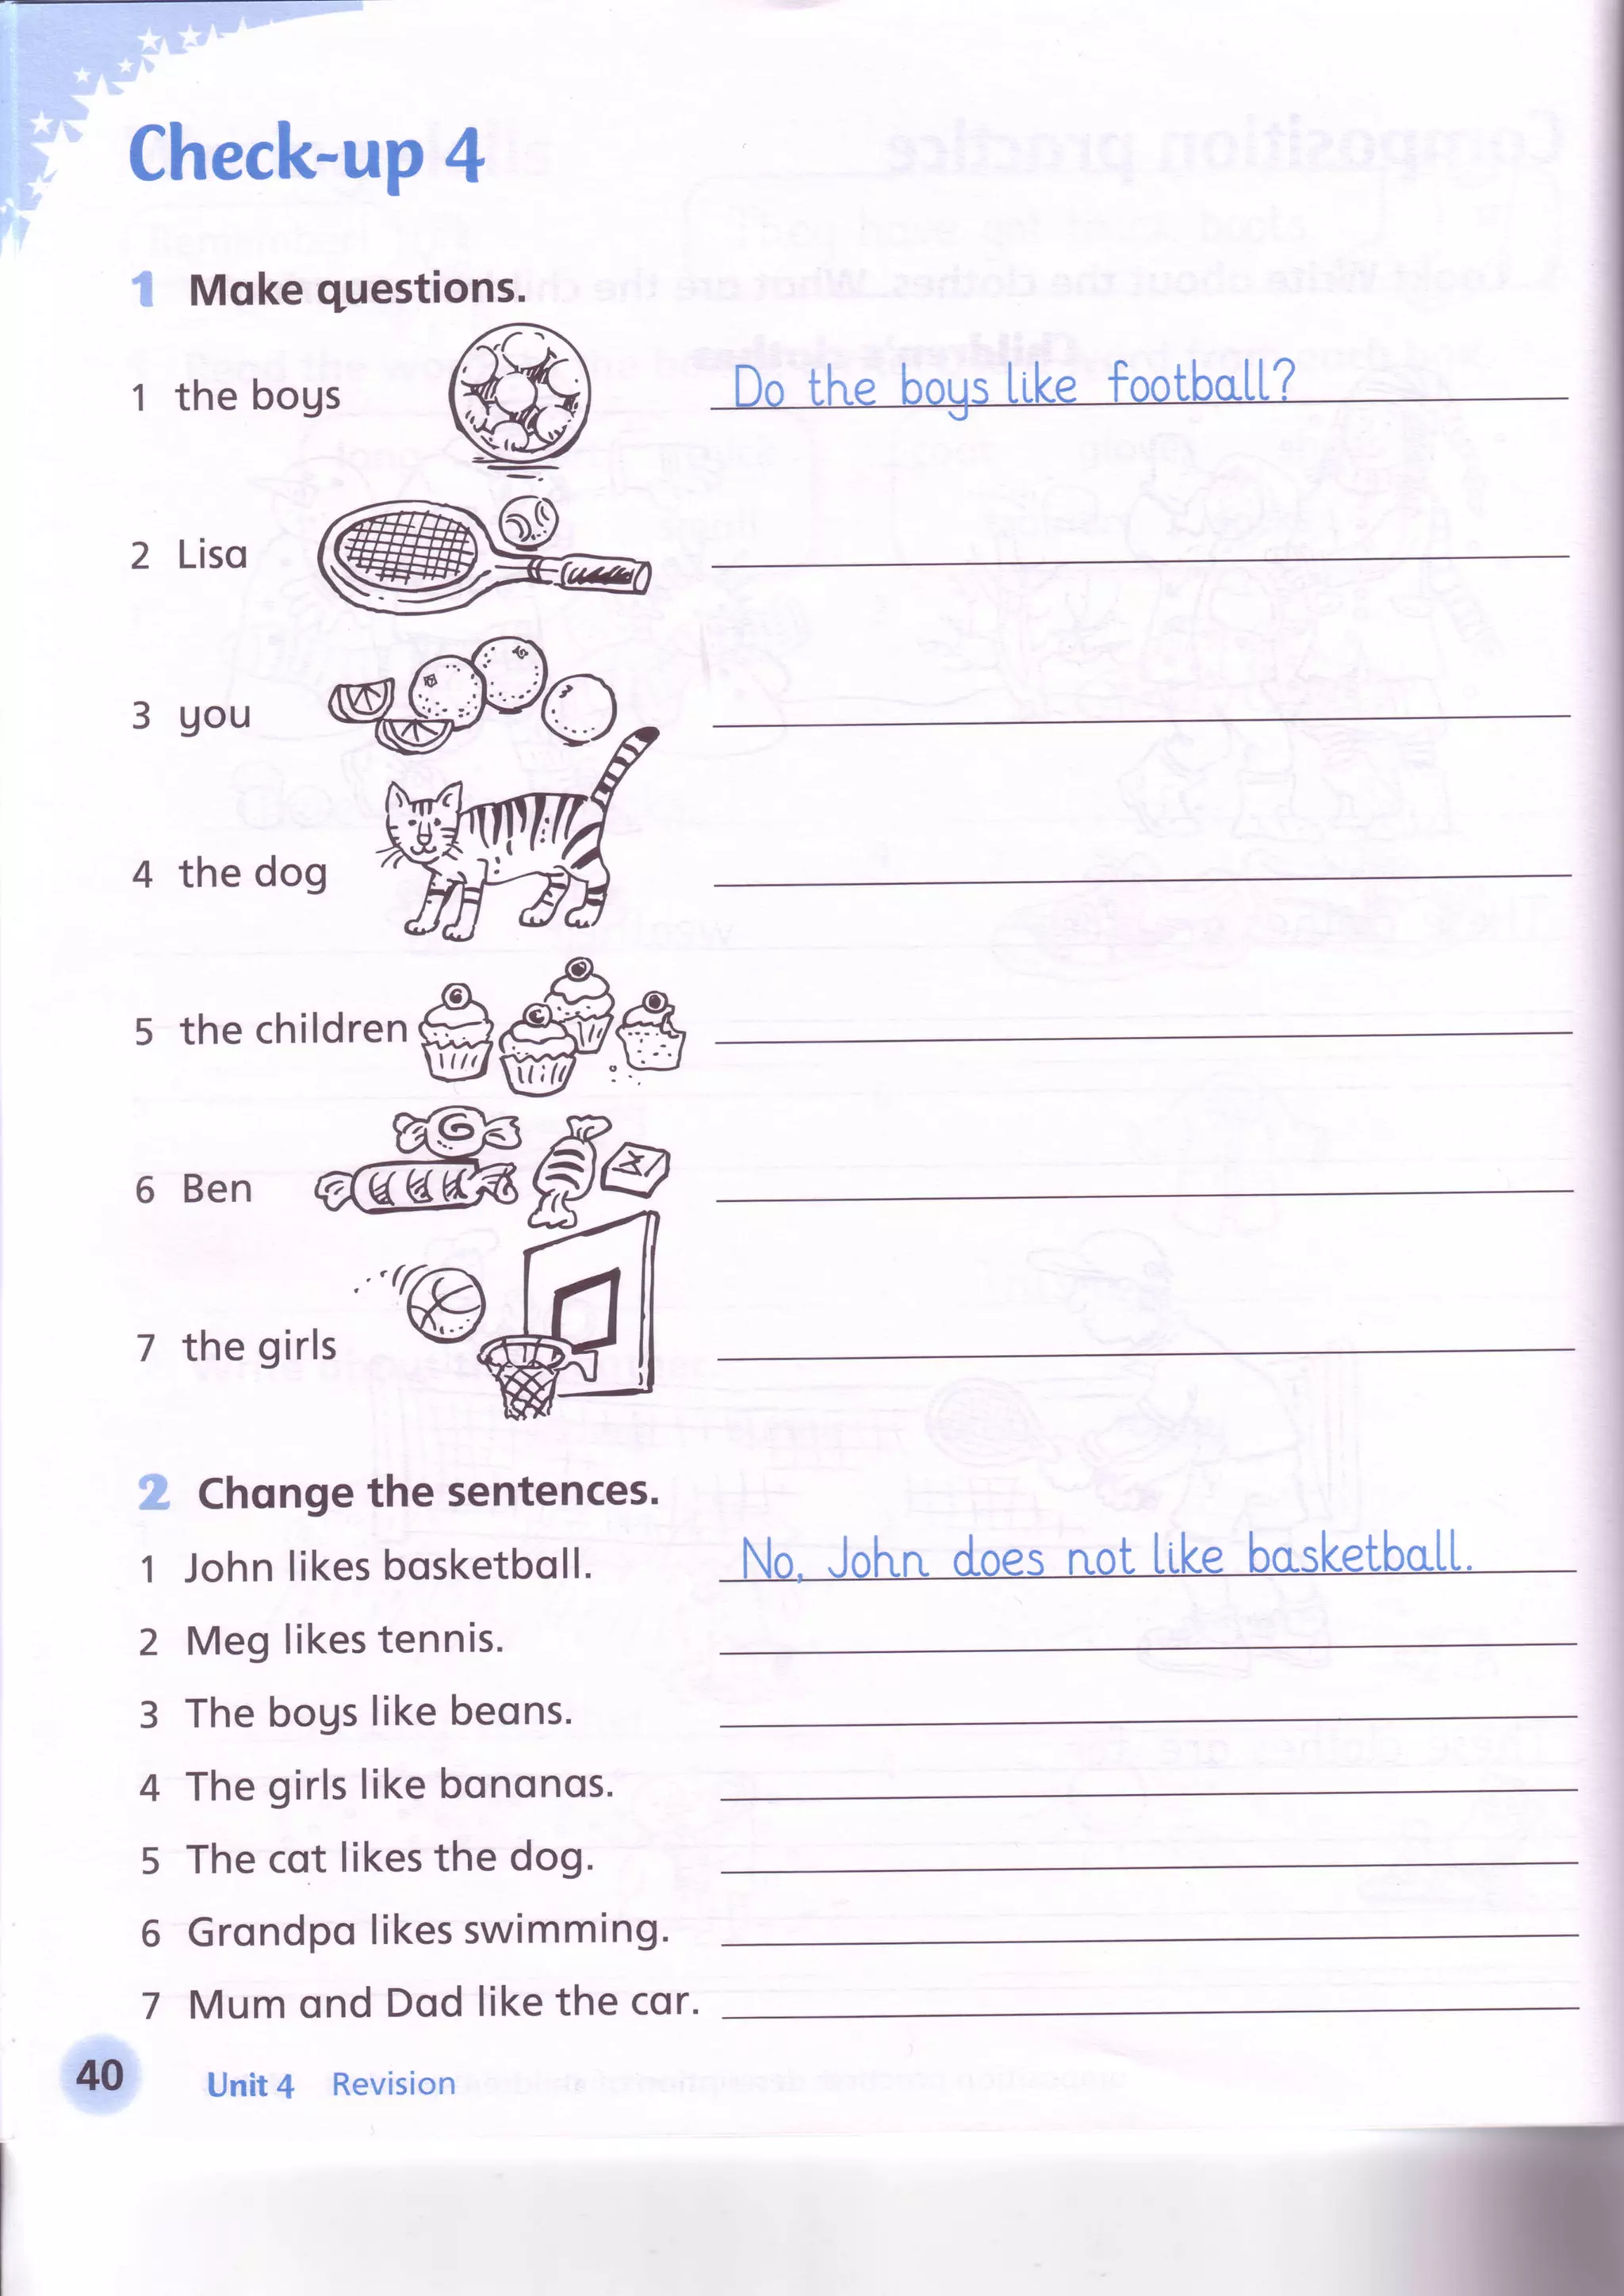 Check-up 4
1 Make questions.
1 the boys Do the boys like football?
2 Lisa
3 you
4 the dog
5 the children
6 Ben
7 the girls
2 Change the sentences.
1 John likes basketball. No, John does not like basketball.
2 Meg likes tennis.
3 The boys like beans.
4 The girls like bananas.
5 The cat likes the dog.
6 Grandpa likes swimming.
7 Mum and Dad like the car.
40 Unit 4 Revision